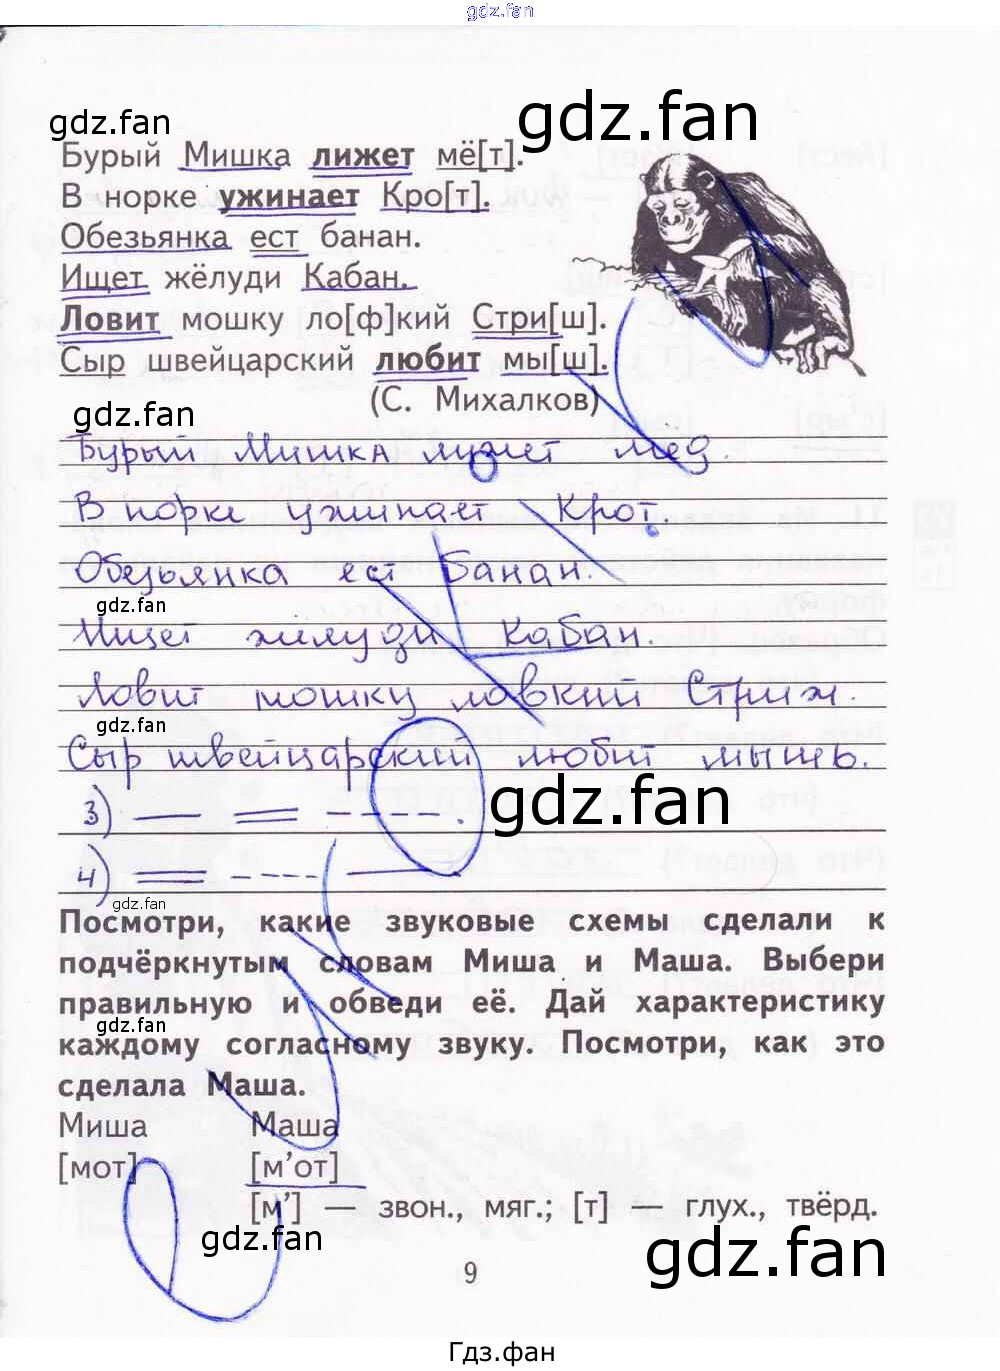 gdz.fan
gdz.fan
gdz.fan
Бурый Мишка лижет мё[т].
В норке ужинает Кро[т].
Обезьянка ест банан.
Ищет жёлуди Кабан.
Ловит мошку ло[ф]кий Стри[ш].
Сыр швейцарский любит мы[ш].
(С. Михалков)
gdz.fan
Бурый Мишка лижет мед.
В норке ужинает Крот.
Обезьянка ест банан.
gdz.fan
Ищет жилуди Кабан.
Ловит мошку ловкий Стриж.
gdz.fan
Сыр швейцарский любит мышь.
gdz.fan
3)
4)
gdz.fan
Посмотри, какие звуковые схемы сделали к
подчёркнутым словам Миша и Маша. Выбери
правильную и обведи её. Дай характеристику
gdz.fan
каждому согласному звуку. Посмотри, как это
сделала Маша.
Миша Маша
[мот] [м’от]
[м’] — звон., мяг.; [т] — глух., твёрд.
gdz.fan
gdz.fan
9
Гдз.фан